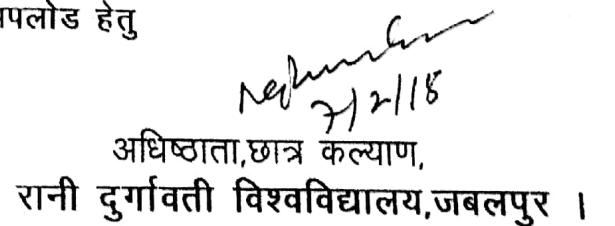 हेतु
7/2/18
अधिष्ठाता,छात्र कल्याण,
रानी दुर्गावती विश्वविद्यालय,जबलपुर ।